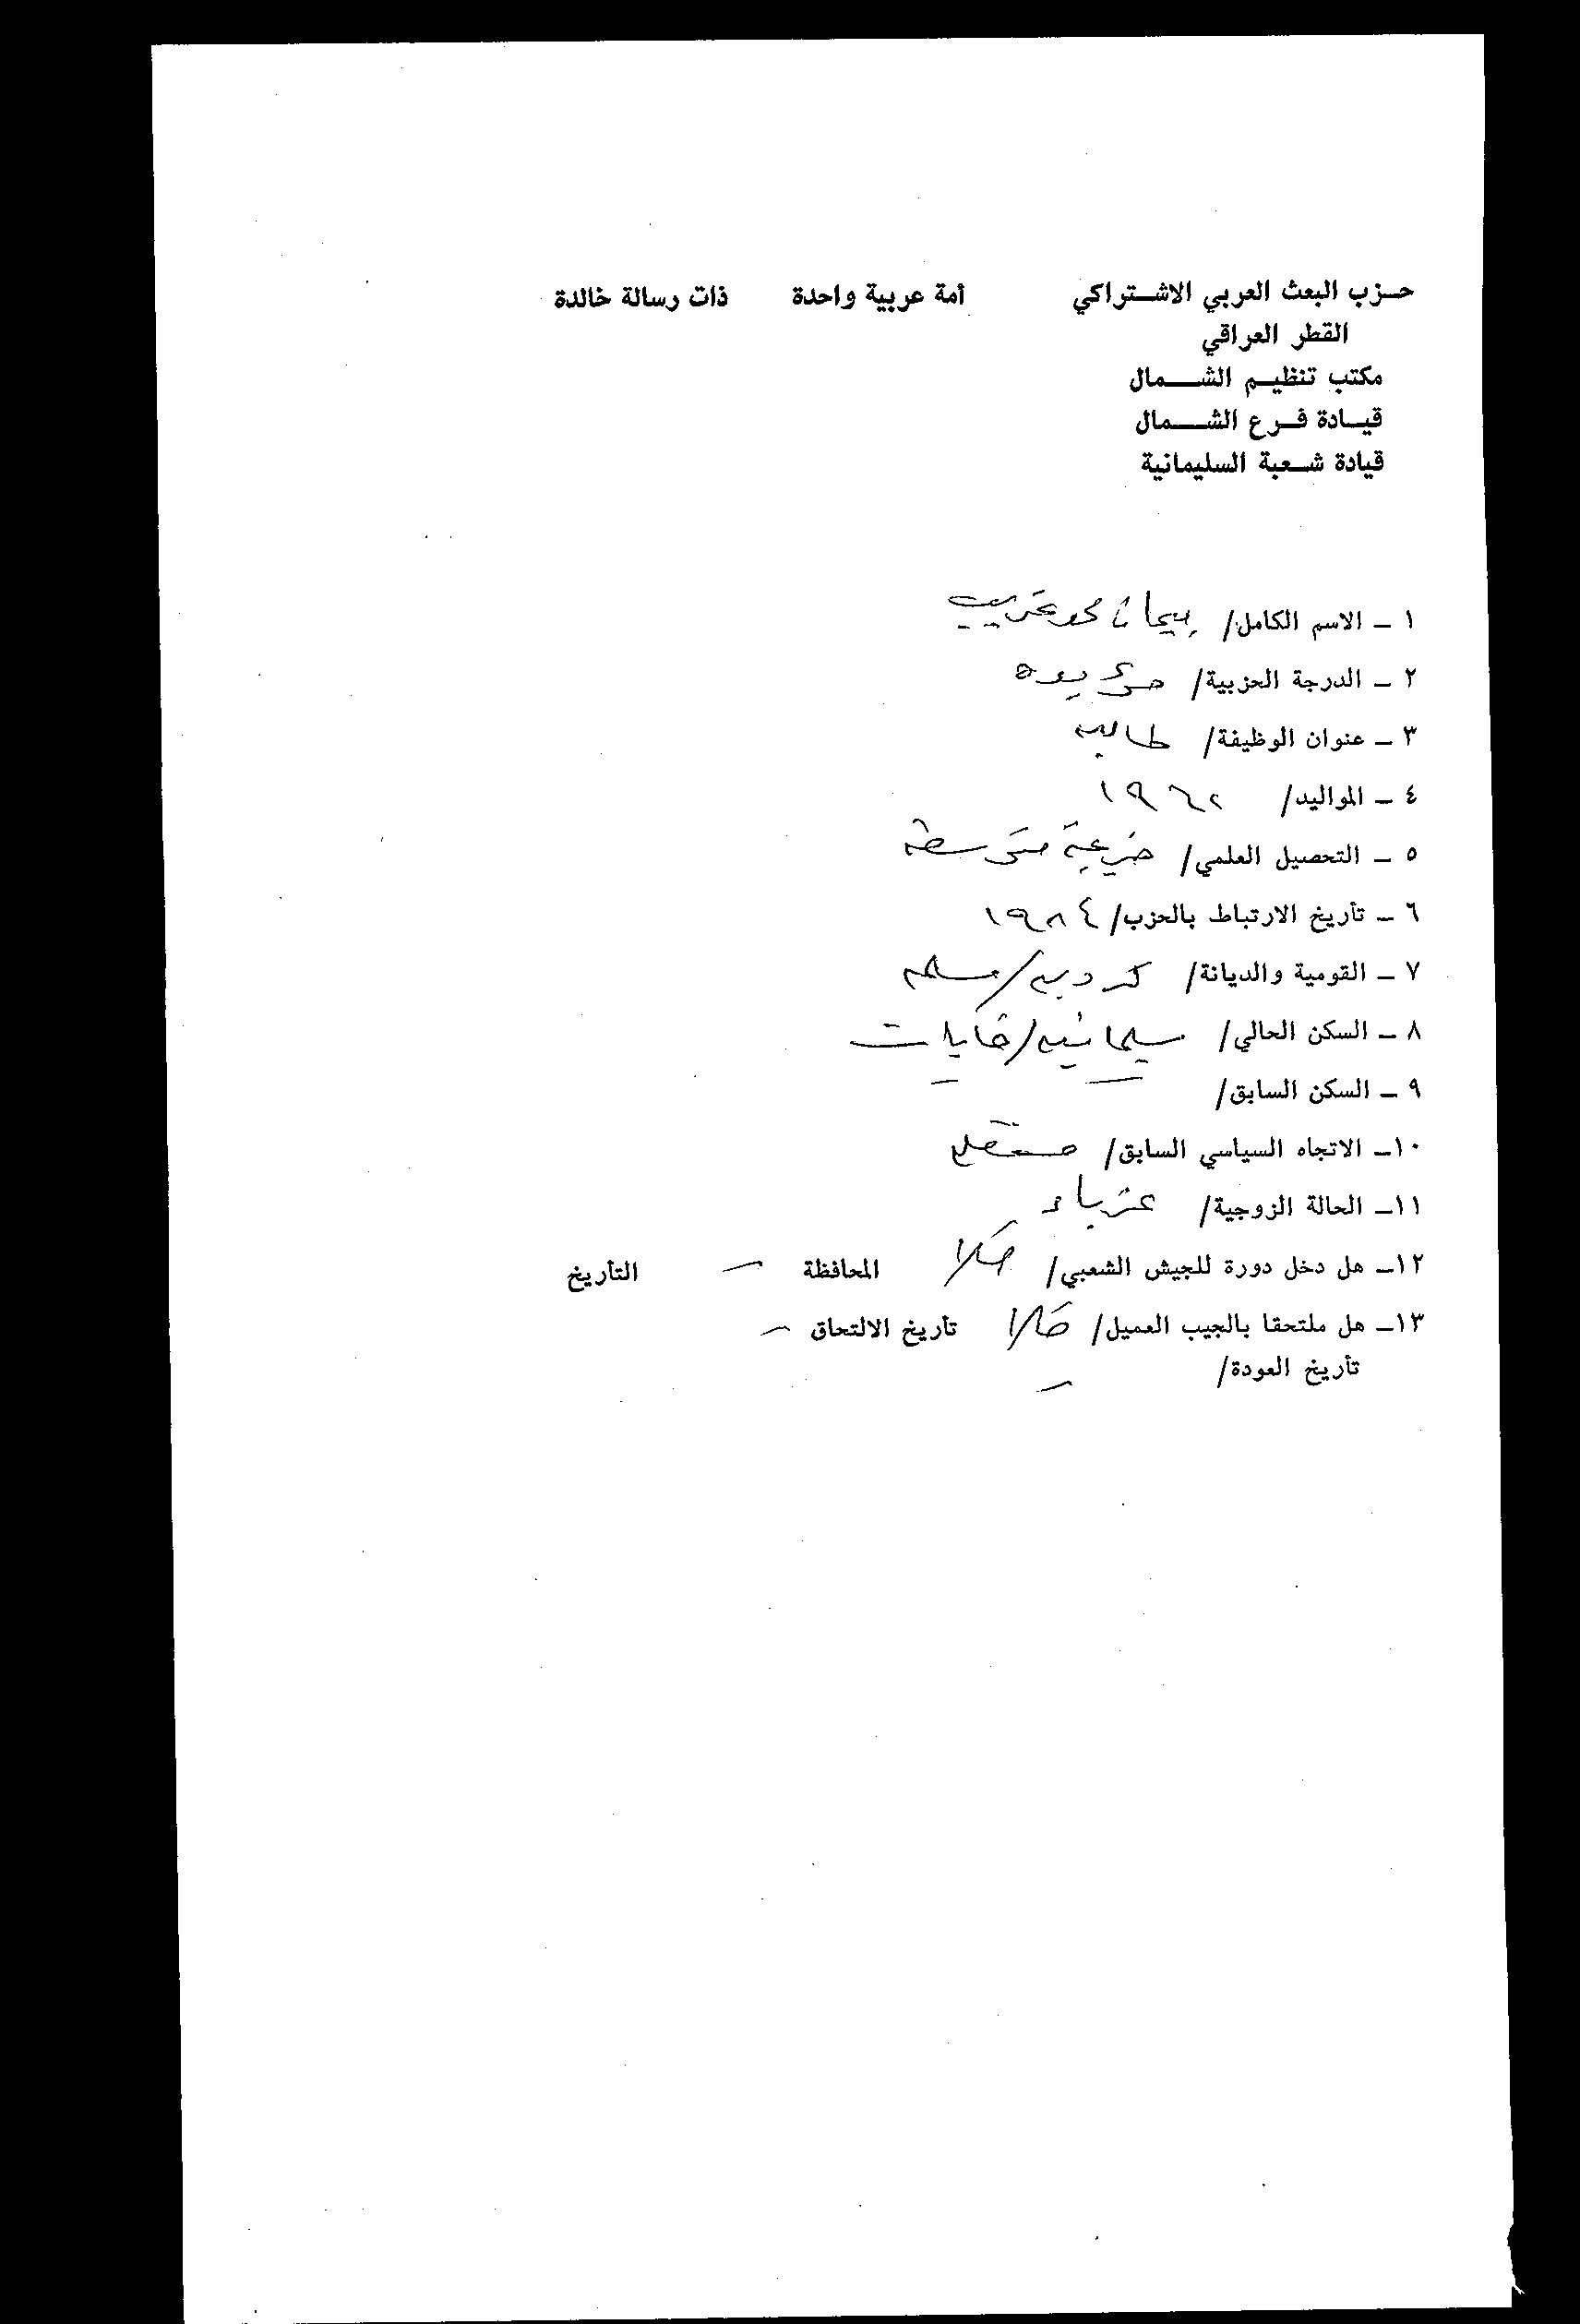 حزب البعث العربي الاشتراكي أمة عربية واحدة ذات رسالة خالدة
القطر العراقي
مكتب تنظيم الشمال
قيادة فرع الشمال
قيادة شعبة السليمانية
١ - الاسم الكامل/ بيمان محمد غريب
٢ - الدرجة الحزبية/ مؤيدة
٣ - عنوان الوظيفة/ طالبه
٤ - المواليد/ ١٩٦٢
٥ - التحصيل العلمي/ خريجة متوسطه
٦ - تأريخ الارتباط بالحزب/ ١٩٨٤
٧ - القومية والديانة/ كرديه/مسلمه
٨ - السكن الحالي/ سليمانيه/
٩ - السكن السابق/
١٠- الاتجاه السياسي السابق/ مستقل
١١- الحالة الزوجية/ عزباء
١٢- هل دخل دورة للجيش الشعبي/ كلا المحافظة - التأريخ
١٣- هل ملتحقا بالجيب العميل/ كلا تأريخ الالتحاق -
تأريخ العودة/ -